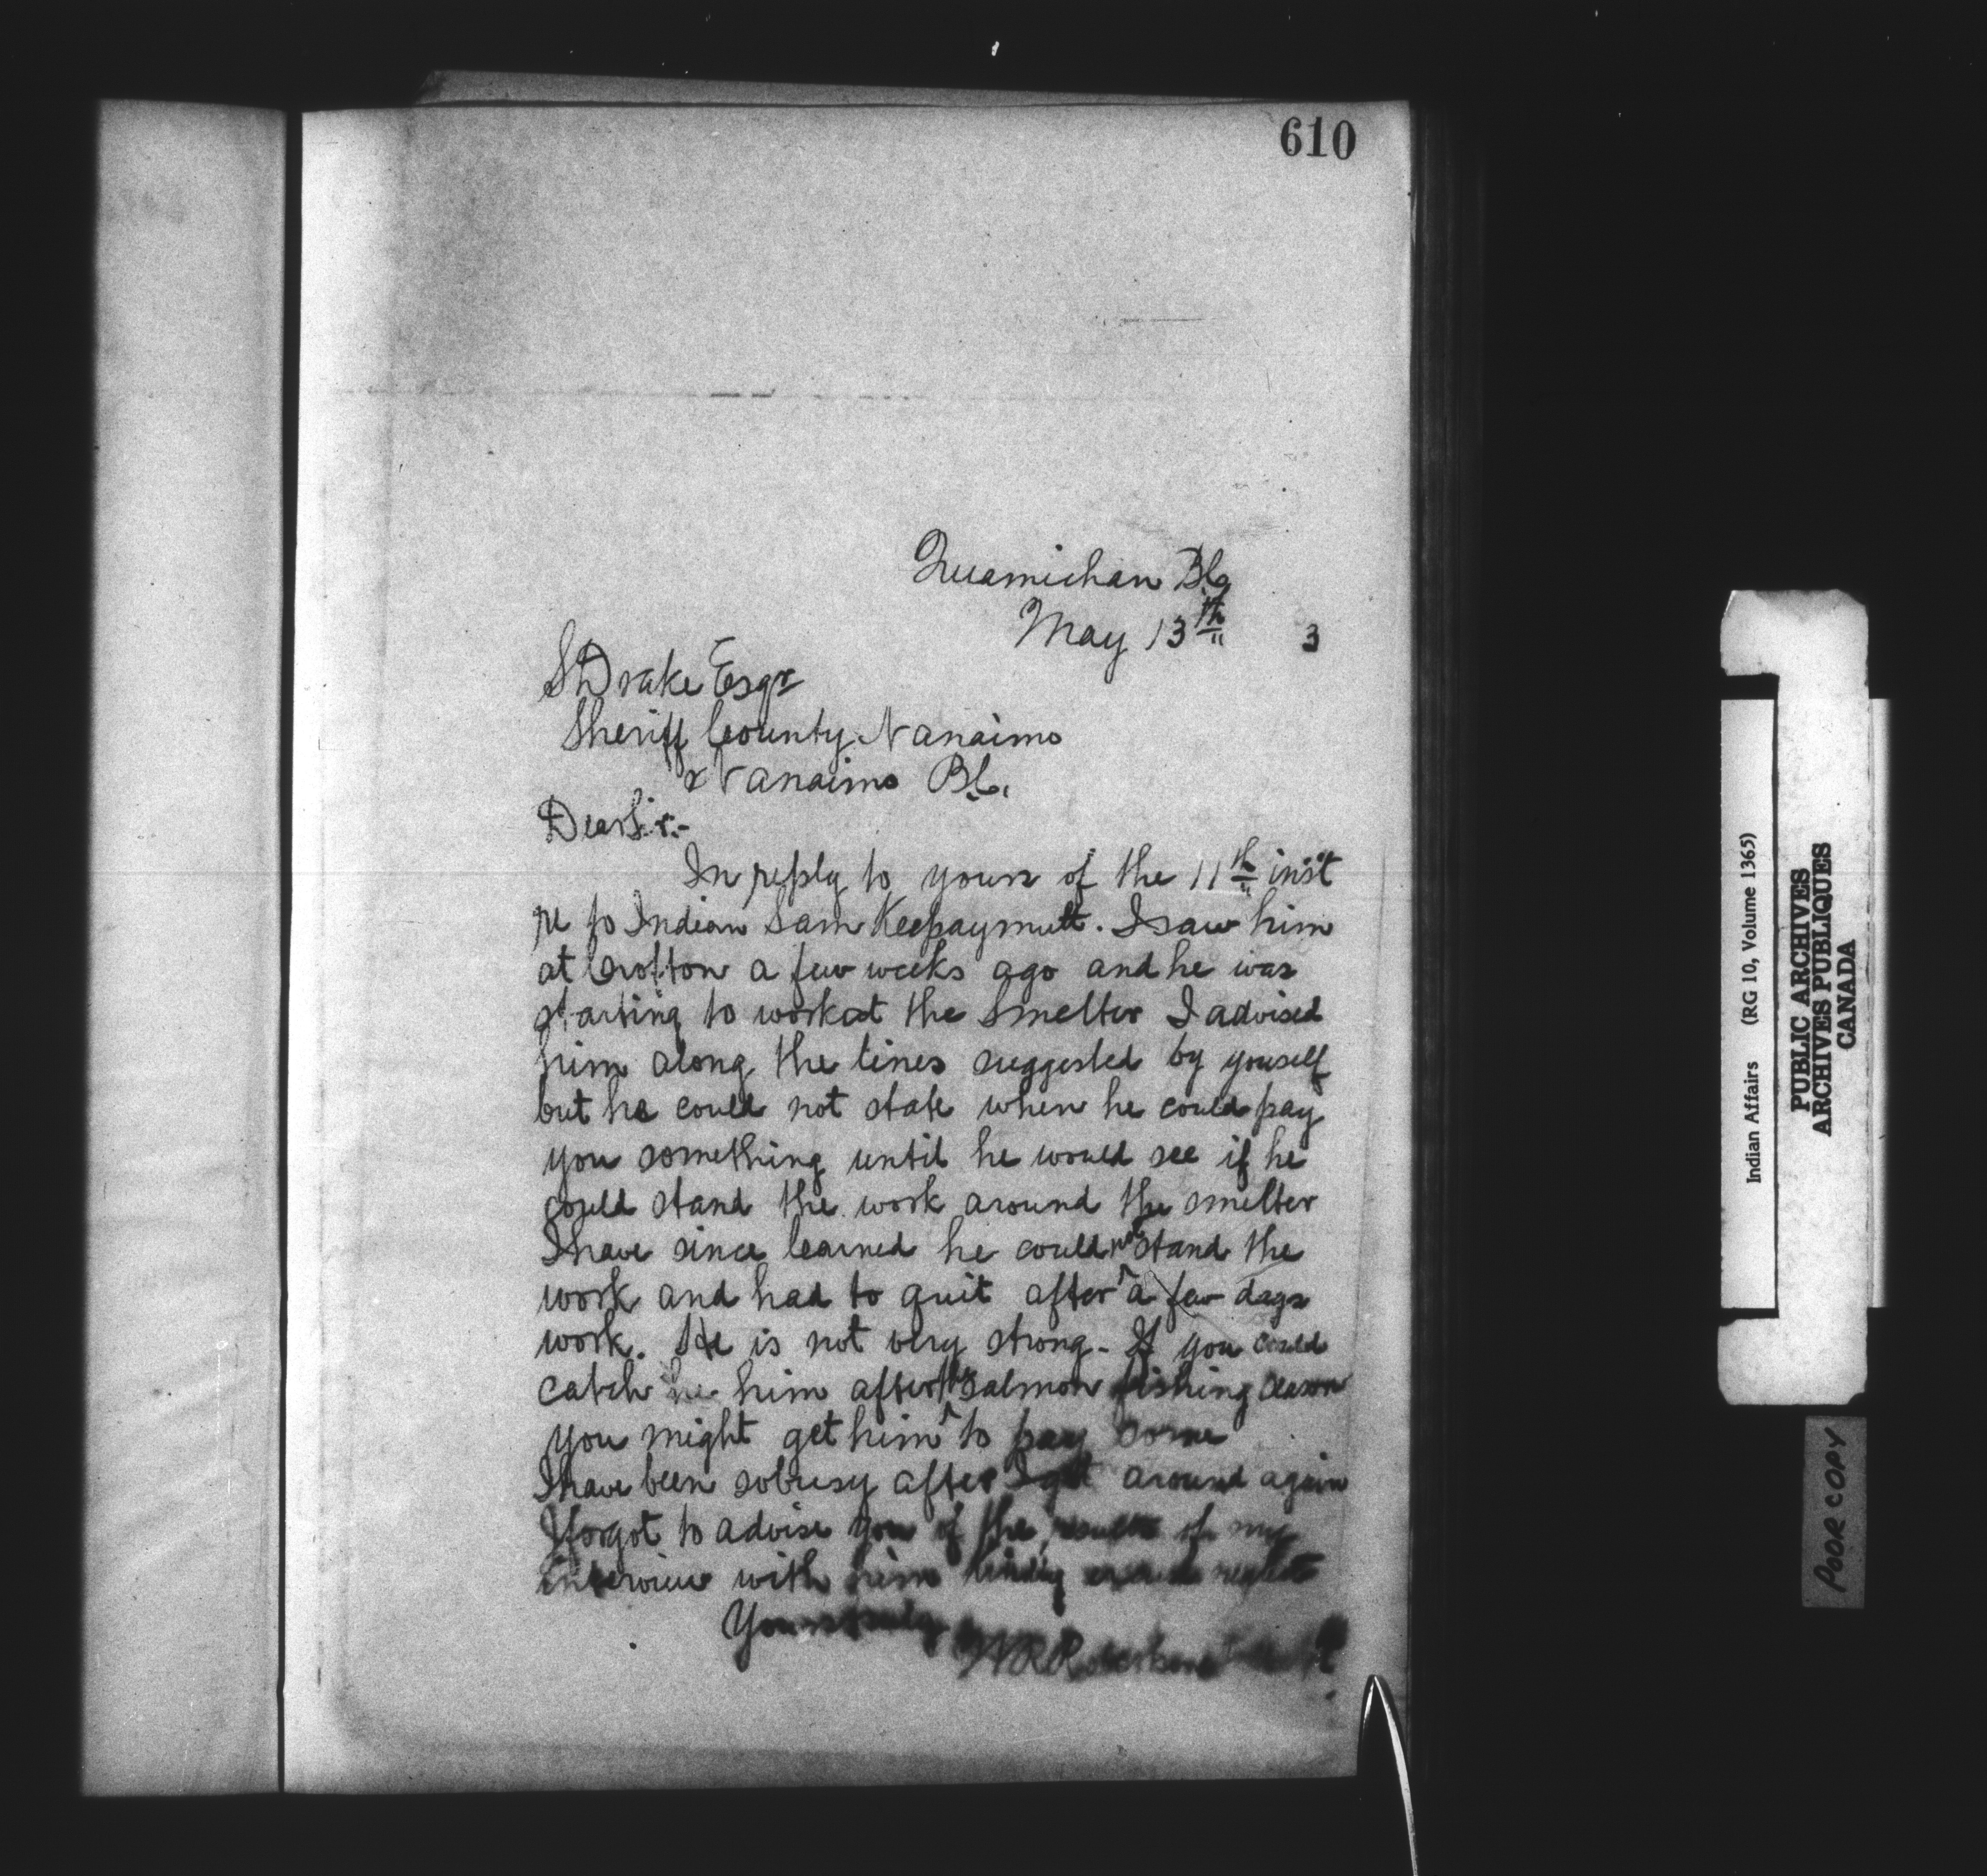 610
Quamichan B.C.
May 13th 3
S Drake Esqr
Sheriff County Nanaimo
Nanaimo B.C.
Dear Sir:-
In reply to yours of the 11th inst
re to Indian Sam Keepaymult. I saw him
at Crofton a few weeks ago and he was
starting to work at the Smelter I advised
him along the lines suggested by youself
but he could not state when he could pay
you something until he would see if he
could stand the work around the smelter
I have since learned he could not stand the
work and had to quit after a few days
work. He is not very strong - If you could
catch he him after the salmon fishing season
you might get him to pay some
I have been so busy after I got around again
I forgot to advise you of the results of my
interview with him Kindly excuse neglect
Yours truly
W R Robertson
Indian Affairs (RG 10, Volume 1365)
PUBLIC ARCHIVES
ARCHIVES PUBLIQUES
CANADA
POOR COPY